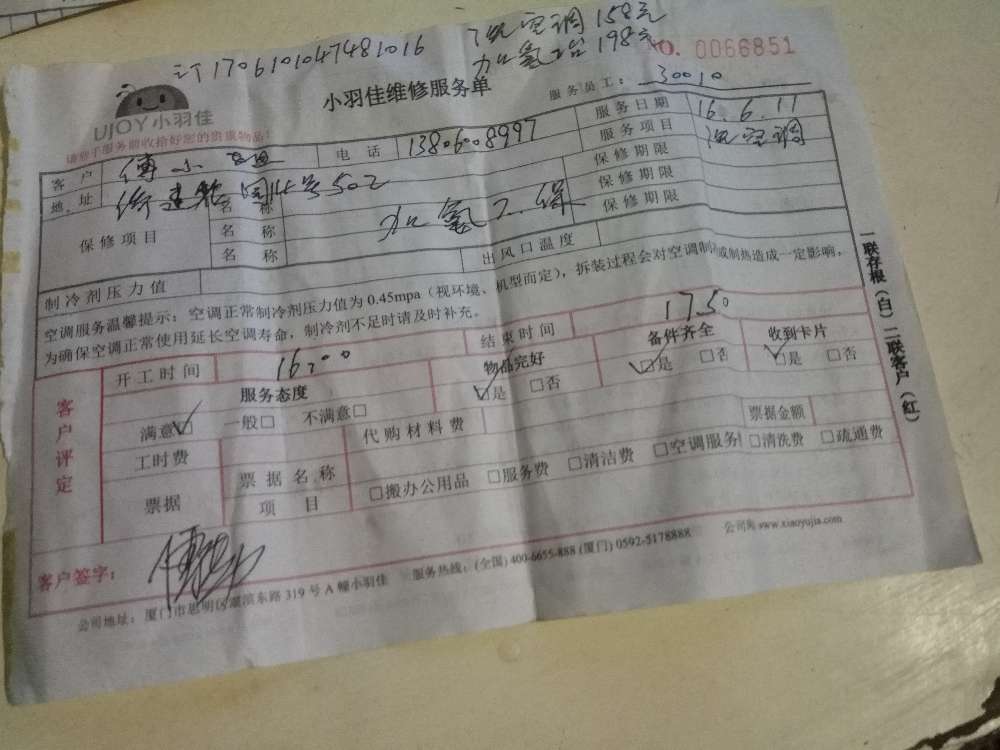 订1706101047481016 洗空调158元
加氟2台198元
NO. 0066851
UJOY小羽佳
小羽佳维修服务单
服务员工: 30010
请您于服务前收拾好您的贵重物品!
客户 傅小 电话 服务日期 16.6.11
地址 14号502 服务项目 洗空调
保修项目 名称 保修期限
名称 加氟 保 保修期限
名称 保修期限
制冷剂压力值 出风口温度
空调服务温馨提示:空调正常制冷剂压力值为0.45mpa(视环境、机型而定),拆装过程会对空调制冷或制热造成一定影响,
为确保空调正常使用延长空调寿命,制冷剂不足时请及时补充。
开工时间 16:00 结束时间 17.50
客户评定
服务态度 物品完好 备件齐全 收到卡片
满意□ 一般□ 不满意□ □是 □否 □是 □否 □是 □否
工时费 代购材料费 票据金额
票据 票据名称 项目 □搬办公用品 □服务费 □清洁费 □空调服务 □清洗费 □疏通费
客户签字:
公司地址:厦门市思明区莲滨东路319号A幢小羽佳 服务热线:(全国)400-6655-888(厦门)0592-5178888 公司网 www.xiaoyujia.com
一联存根(白)二联客户(红)